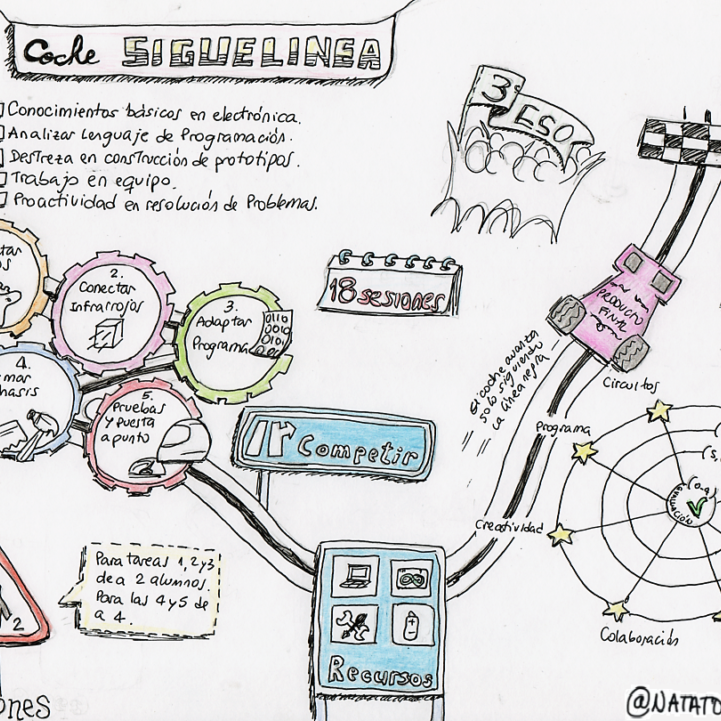 Coche SIGUELINEA
Conocimientos básicos en electrónica.
Analizar Lenguaje de Programación.
Destreza en construcción de prototipos.
Trabajo en equipo.
Proactividad en resolución de Problemas.
3º ESO
18 sesiones
2.
Conectar
Infrarrojos
3.
Adaptar
Programa
0110
0010
0101
4.
5.
Pruebas
y puesta
a punto
Competir
El coche avanza
solo siguiendo
la línea negra
PRODUCTO
FINAL
Circuitos
Programa
Creatividad
Colaboración
Para tareas 1, 2 y 3
de a 2 alumnos.
Para las 4 y 5 de
a 4.
2
Recursos